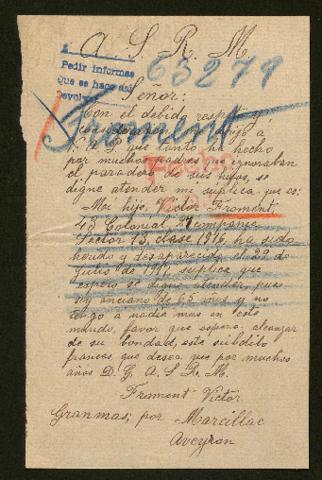 A. S. R. M.
Pedir informes
que se hace así
63279
Señor:
Con el debido respeto y
consideración dirijo á
V. A. R. que tanto ha hecho
por muchos padres que ignoraban
el paradero de sus hijos, se
digne atender mi súplica que es:
Froment
Mi hijo, Victor Froment
4º Colonial, 24 compañia
Sector 13, clase 1916, ha sido
herido y desaparecido el 22 de
julio de súplica que
espero se digne atender, pues
soy anciano de 65 años y no
tengo a nadie mas en este
mundo, favor que espera alcanzar
de su bondad, este subdito
frances que desea que por muchos
años D. G. A. S. R. M.
Froment Victor
Granmas; por Marcillac
Aveyron